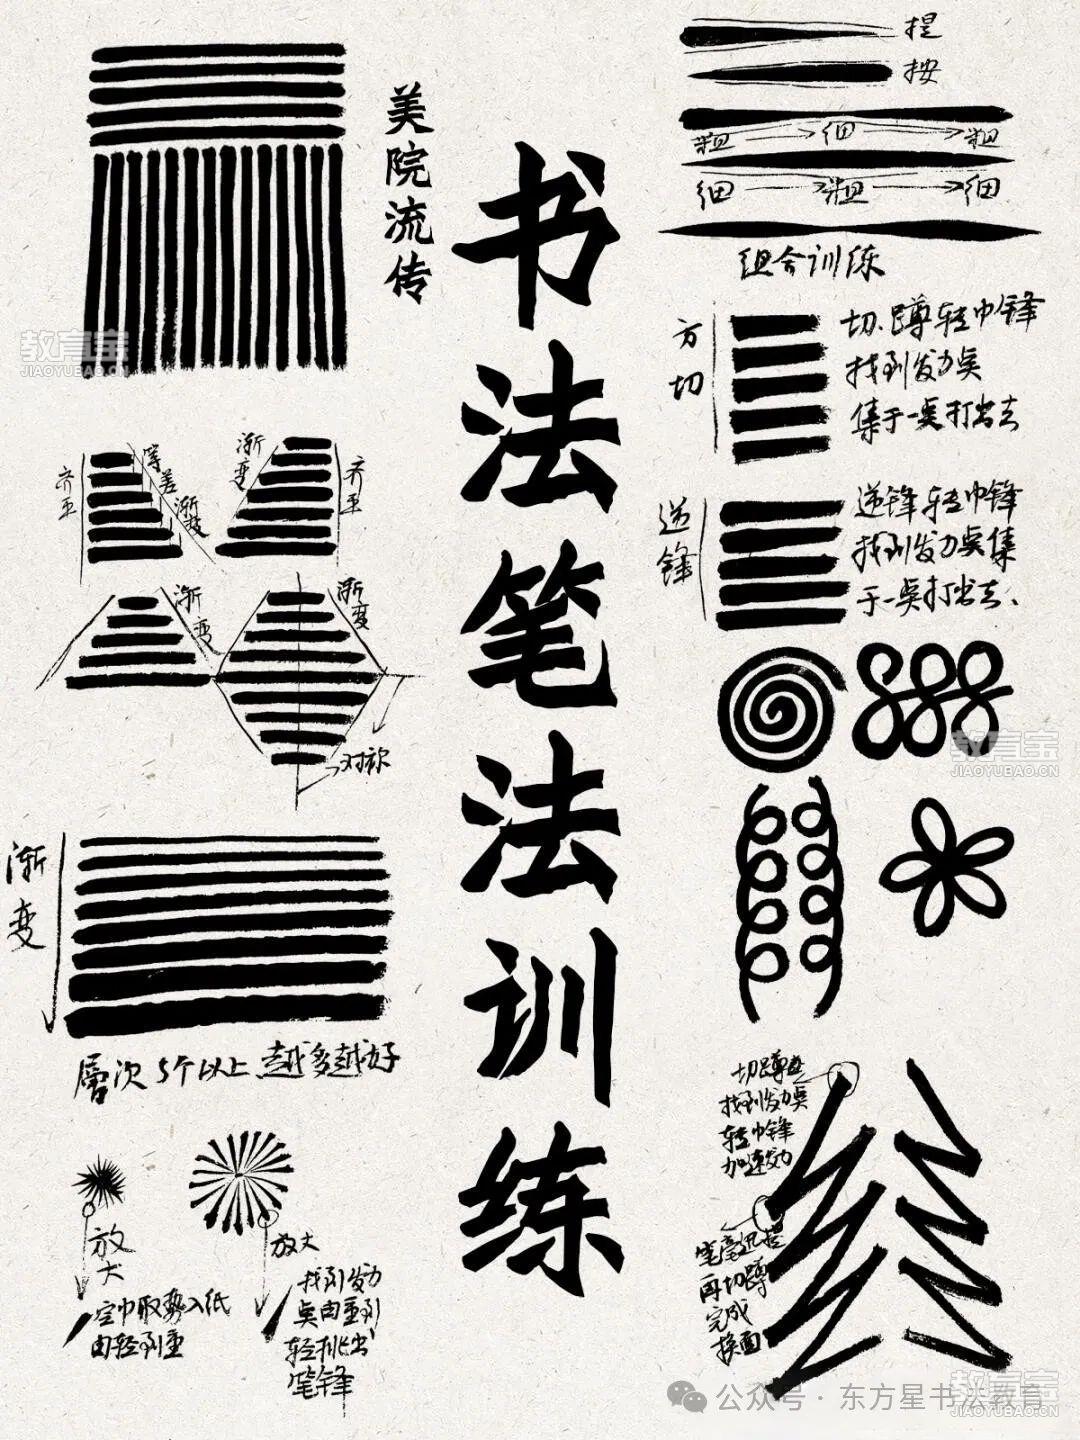 美院流传
书法笔法训练
提
按
粗 细 粗
细 粗 细
组合训练
方切
切、蹲转中锋
找到发力点
集于一点打出去
逆锋
逆锋转中锋
找到发力点集
于一点打出去、
齐平
等差渐变
渐变
齐平
渐变
渐变
对称
渐变
层次5个以上越多越好
放大
空中取势入纸
由轻到重
放大
找到发力
点由重到
轻挑出
笔锋
切蹲转
找到发力点
转中锋
加速发力
笔毫迅提
再切蹲
完成
换面
教育宝
JIAOYUBAO.CN
教育宝
JIAOYUBAO.CN
教育宝
JIAOYUBAO.CN
公众号·东方星书法教育